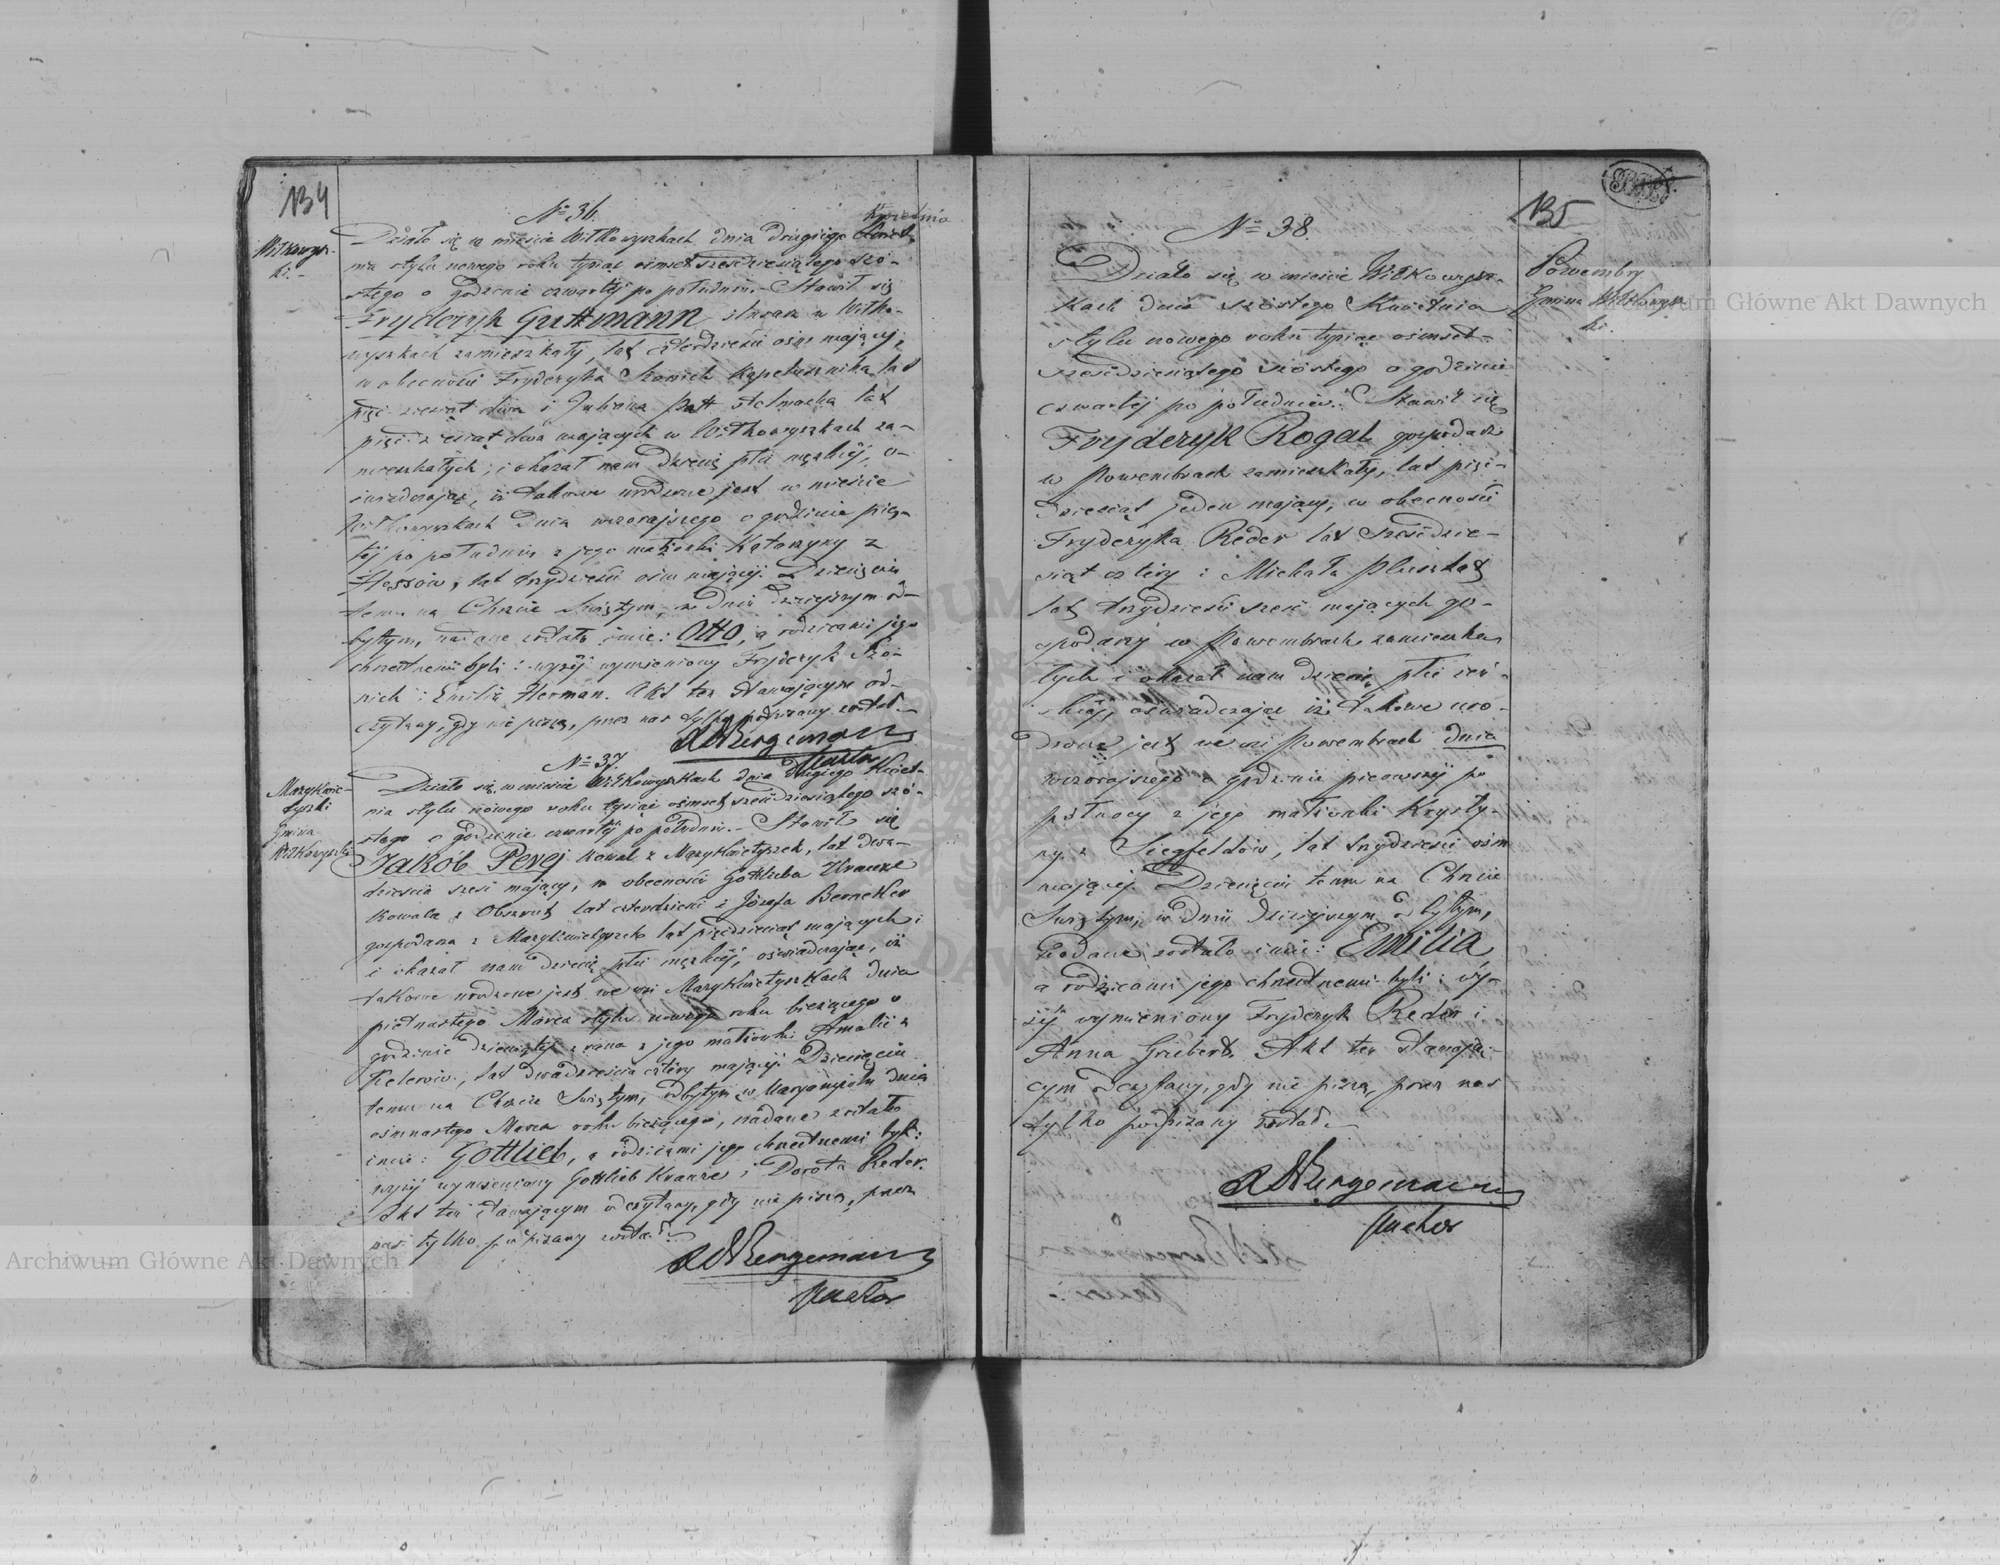 134
Wiłkowysz-
ki.-
№ 36.
Kwietnia
Działo się w mieście Wiłkowyszkach dnia drugiego
nia stylu nowego roku tysiąc ośmset sześćdziesiątego szó-
stego o godzinie czwartéj po południu.- Stawił się
Fryderyk Guttmann, w Wiłko-
wyszkach zamieszkały, lat czterdzieści ośm mający,
w obecności Fryderyka Kapelusznika lat
pięćdziesiąt dwa i Juliana Stelmacha lat
pięćdziesiąt dwa mających w Wiłkowyszkach za-
mieszkałych; i okazał nam dziecię płci męzkiéj, o-
świadczając, iż takowe urodzone jest w mieście
Wiłkowyszkach dnia wczorajszego o godzinie pią-
téj po południu z jego małżonki Katarzyny z
Hessów, lat trzydzieści ośm mającéj. Dziecięciu
temu na Chrzcie Świętym, w dniu dzisiejszym od-
bytym, nadane zostało imię: Otto, a rodzicami jego
chrzestnemi byli: wyżéj wymieniony Fryderyk Szo-
nich i Emilia Herman. Akt ten stawającym od-
czytany, gdy nie piszą, przez nas tylko podpisany został.-
Bergemann
Pastor
№ 37.
Marykwie-
tyszki
Gmina
Wiłkowyszki
Działo się w mieście Wiłkowyszkach dnia drugiego Kwiet-
nia stylu nowego roku tysiąc ośmset sześćdziesiątego szó-
stego o godzinie czwartéj po południu.- Stawił się
Jakob Perej kowal z Marykwietyszek, lat dwa-
dzieścia sześć mający, w obecności Gottlieba Krauze
kowala z Obszrut lat czterdzieści i Józefa Berneker
gospodarza z Marykwietyszek lat pięćdziesiąt mających i
i okazał nam dziecię płci męzkiéj, oświadczając, iż
takowe urodzone jest we wsi Marykwietyszkach dnia
piętnastego Marca stylu nowego roku bieżącego o
godzinie dziewiątéj z rana z jego małżonki Amalii z
lat dwadzieścia cztéry mającéj. Dziecięciu
temu na Chrzcie Świętym, odbytym w Maryampolu dnia
ośmnastego Marca roku bieżącego, nadane zostało
imie: Gottlieb, a rodzicami jego chrzestnemi byli:
wyżéj wymieniony Gottlieb Krauze i Dorota Reder.
Akt ten stawającym odczytany, gdy nie piszą, przez
nas tylko podpisany został.-
Bergemann
Pastor
135
Powembry
Gmina Wiłkowysz-
ki.
№ 38.
Działo się w mieście Wiłkowysz-
kach dnia szóstego Kwietnia
stylu nowego roku tysiąc ośmset-
sześćdziesiątego szóstego o godzinie
czwartéj po południu.- Stawił się
Fryderyk Rogal gospodarz
w Powembrach zamieszkały, lat pięć-
dziesiąt jeden mający, w obecności
Fryderyka Reder lat sześćdzie-
siąt cztéry i Michała
lat trzydzieści sześć mających go-
spodarzy w Powembrach zamieszka-
łych i okazał nam dziecię płci żeń-
skiéj, oświadczając iż takowe uro-
dzone jest we wsi Powembrach dnia
wczorajszego o godzinie pierwszéj po
północy z jego małżonki Krysty-
ny z Siegfeldów, lat trzydzieści ośm
mającéj. Dziecięciu temu na Chrzcie
Świętym, w dniu dzisiejszym odbytym,
nadane zostało imie: Emilia
a rodzicami jego chrzestnemi byli: wy-
żéj wymieniony Fryderyk Reder i
Anna Grubert. Akt ten stawają-
cym odczytany, gdy nie piszą, przez nas
tylko podpisany został.-
Bergemann
Pastor
Archiwum Główne Akt Dawnych
Archiwum Główne Akt Dawnych